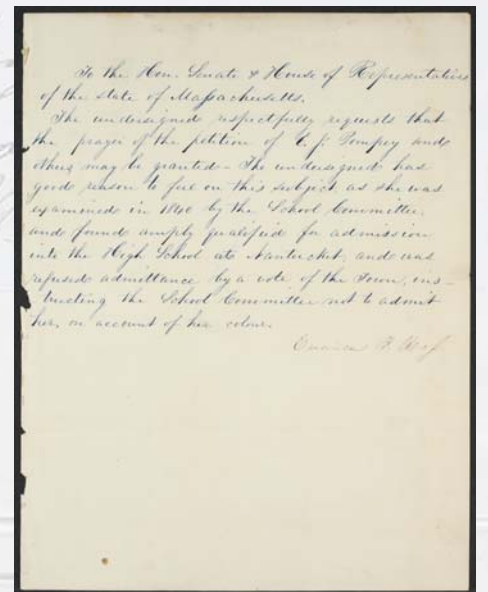 To the Hon. Senate & House of Representatives
of the state of Massachusetts.
The undersigned respectfully requests that
the prayer of the petition of E. J. Pompey and
others may be granted – The undersigned has
good reason to feel on this subject, as she was
examined in 1840 by the School Committee,
and found amply qualified for admission
into the High School at Nantucket, and was
refused admittance by a vote of the Town, ins-
tructing the School Committee not to admit
her, on account of her colour.